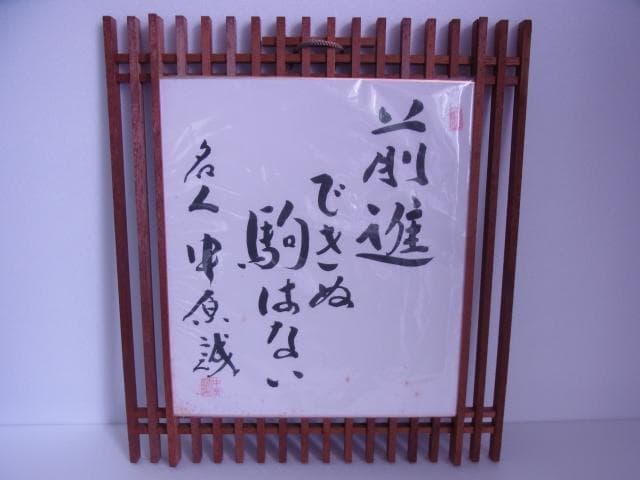 前進
できぬ
駒はない
名人 中原誠